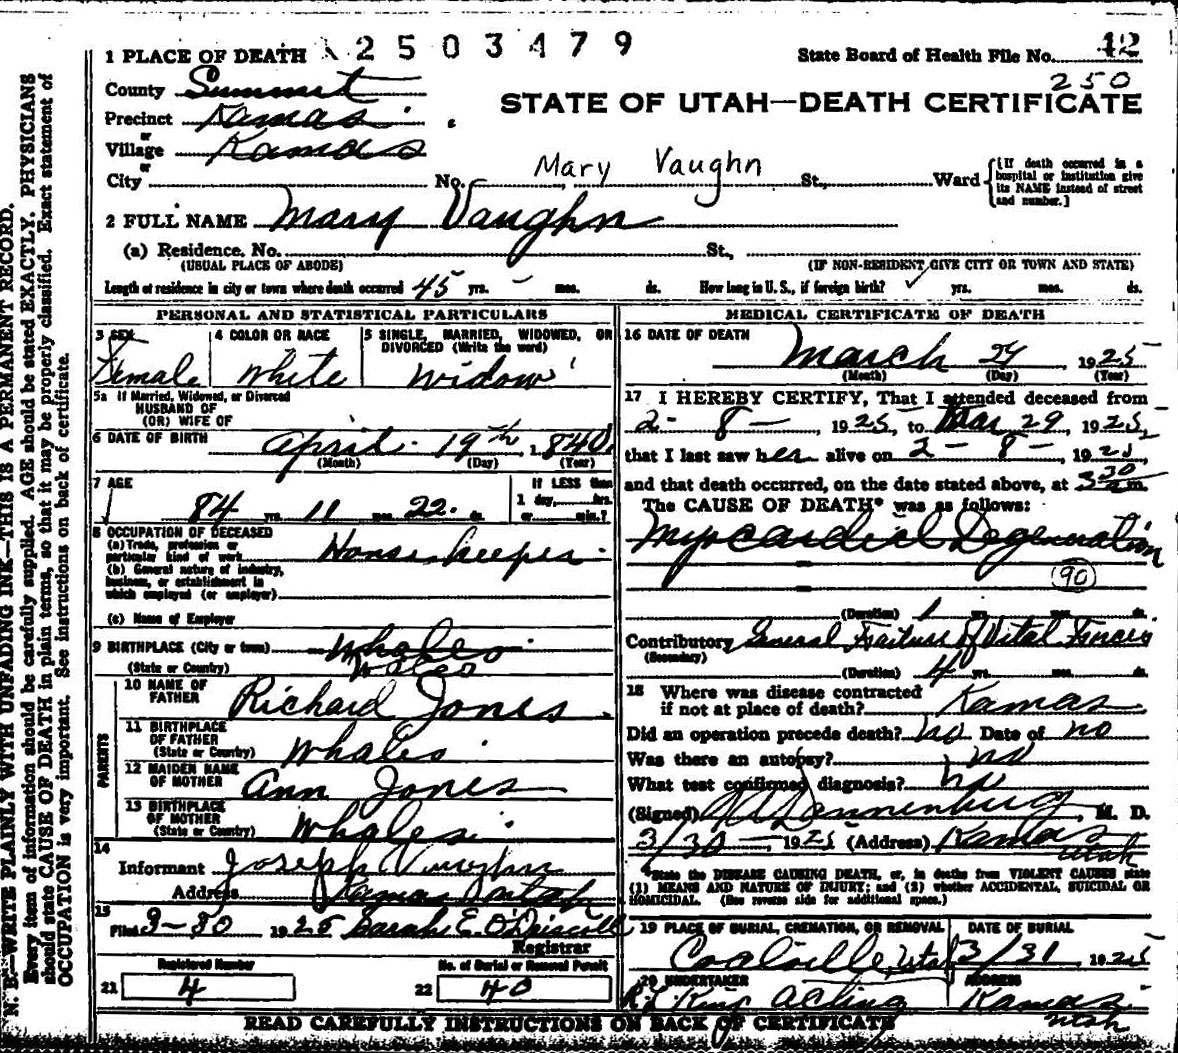 1 PLACE OF DEATH 2503479 State Board of Health File No. 42
250
County Summit
STATE OF UTAH—DEATH CERTIFICATE
Precinct Kamas
or
Village Kamas
or
Mary Vaughn
City No. St., Ward {[If death occurred in a hospital or institution give its NAME instead of street and number.]
2 FULL NAME Mary Vaughn
(a) Residence. No. St.,
(USUAL PLACE OF ABODE) (IF NON-RESIDENT GIVE CITY OR TOWN AND STATE)
Length of residence in city or town where death occurred 45 yrs. – mos. ds. How long in U.S., if foreign birth? ✓ yrs. mos. ds.
PERSONAL AND STATISTICAL PARTICULARS
3 SEX 4 COLOR OR RACE 5 SINGLE, MARRIED, WIDOWED, OR
DIVORCED (Write the word)
Female White Widow
5a If Married, Widowed, or Divorced
HUSBAND OF
(OR) WIFE OF
6 DATE OF BIRTH April 19th, 1840
(Month) (Day) (Year)
7 AGE If LESS than
1 day, hrs.
84 yrs. 11 mos. 22 ds. or min.?
8 OCCUPATION OF DECEASED
(a) Trade, profession or
particular kind of work House keeper
(b) General nature of industry,
business, or establishment in
which employed (or employer)
(c) Name of Employer
9 BIRTHPLACE (City or town) Whales
(State or Country) Wales
PARENTS
10 NAME OF
FATHER Richard Jones
11 BIRTHPLACE
OF FATHER
(State or Country) Whales
12 MAIDEN NAME
OF MOTHER Ann Jones
13 BIRTHPLACE
OF MOTHER
(State or Country) Whales
14
Informant Joseph Vaughn
Address Kamas Utah
15
Filed 3-30 1925 Sarah E. O'Driscoll
Registrar
Registered Number No. of Burial or Removal Permit
21 4 22 40
MEDICAL CERTIFICATE OF DEATH
16 DATE OF DEATH
March 29 1925
(Month) (Day) (Year)
17 I HEREBY CERTIFY, That I attended deceased from
2-8- , 1925, to Mar 29, 1925,
that I last saw her alive on 2-8-, 1925,
and that death occurred, on the date stated above, at 3 30 a.m.
The CAUSE OF DEATH* was as follows:
Myocardial Degeneration
90
(Duration) 1 yrs. mos. ds.
Contributory General Failure of Vital Forces
(Secondary)
(Duration) 4 yrs. mos. ds.
18 Where was disease contracted
if not at place of death? Kamas
Did an operation precede death? no Date of no
Was there an autopsy? no
What test confirmed diagnosis? no
(Signed) Dannenburg, M. D.
3/30, 1925 (Address) Kamas
Utah
*State the DISEASE CAUSING DEATH, or, in deaths from VIOLENT CAUSES state
(1) MEANS AND NATURE OF INJURY; and (2) whether ACCIDENTAL, SUICIDAL OR
HOMICIDAL. (See reverse side for additional space.)
19 PLACE OF BURIAL, CREMATION, OR REMOVAL DATE OF BURIAL
Coalville, Utah 3/31 1925
20 UNDERTAKER ADDRESS
King Acting Kamas
Utah
READ CAREFULLY INSTRUCTIONS ON BACK OF CERTIFICATE
N. B.—WRITE PLAINLY WITH UNFADING INK—THIS IS A PERMANENT RECORD.
Every item of information should be carefully supplied. AGE should be stated EXACTLY. PHYSICIANS
should state CAUSE OF DEATH in plain terms, so that it may be properly classified. Exact statement of
OCCUPATION is very important. See instructions on back of certificate.